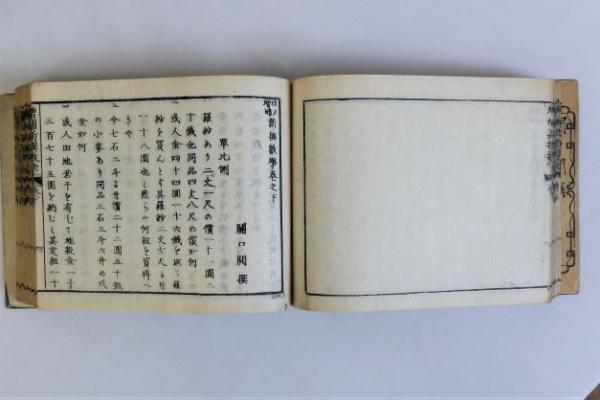 増補新撰數學巻之下
關口開撰
單比例
羅紗あり二丈一尺の價一十一圓二
十錢也同品四丈八尺の價如何
一或人金四十四圓一十六錢を以て羅
紗を買んとす其羅紗二丈七尺
一十八圓也と然らハ何程を買得べ
きや
一今七石二斗 價二十二圓五十錢
の小麥あり同品三石三斗六升の代
金如何
一或人田地若干を有して地税金一千
三百七十五圓を納むと其定租一十